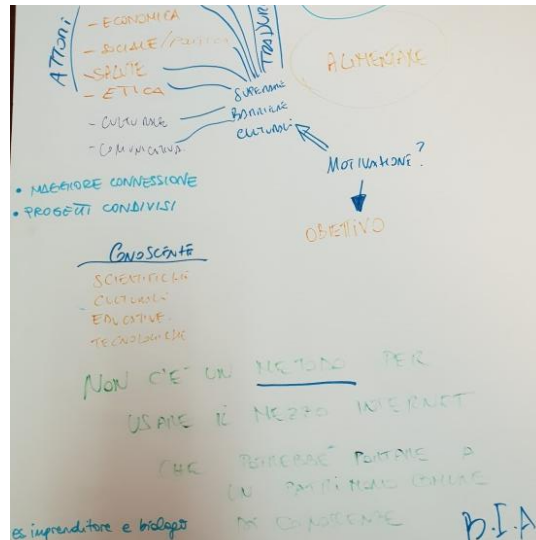 ATTORI
- ECONOMICA
- SOCIALE / POLITICA
- SALUTE
- ETICA
- CULTURALE
- COMUNICATIVA
SUPERARE
BARRIERE
CULTURALI
ALIMENTARE
MOTIVAZIONE?
OBIETTIVO
• MAGGIORE CONNESSIONE
• PROGETTI CONDIVISI
CONOSCENZE
SCIENTIFICHE
CULTURALI
EDUCATIVE
TECNOLOGICHE
NON C'E' UN METODO PER
USARE IL MEZZO INTERNET
CHE POTREBBE PORTARE A
UN PATRIMONIO COMUNE
DI CONOSCENZE
es imprenditore e biologo
B.I.A